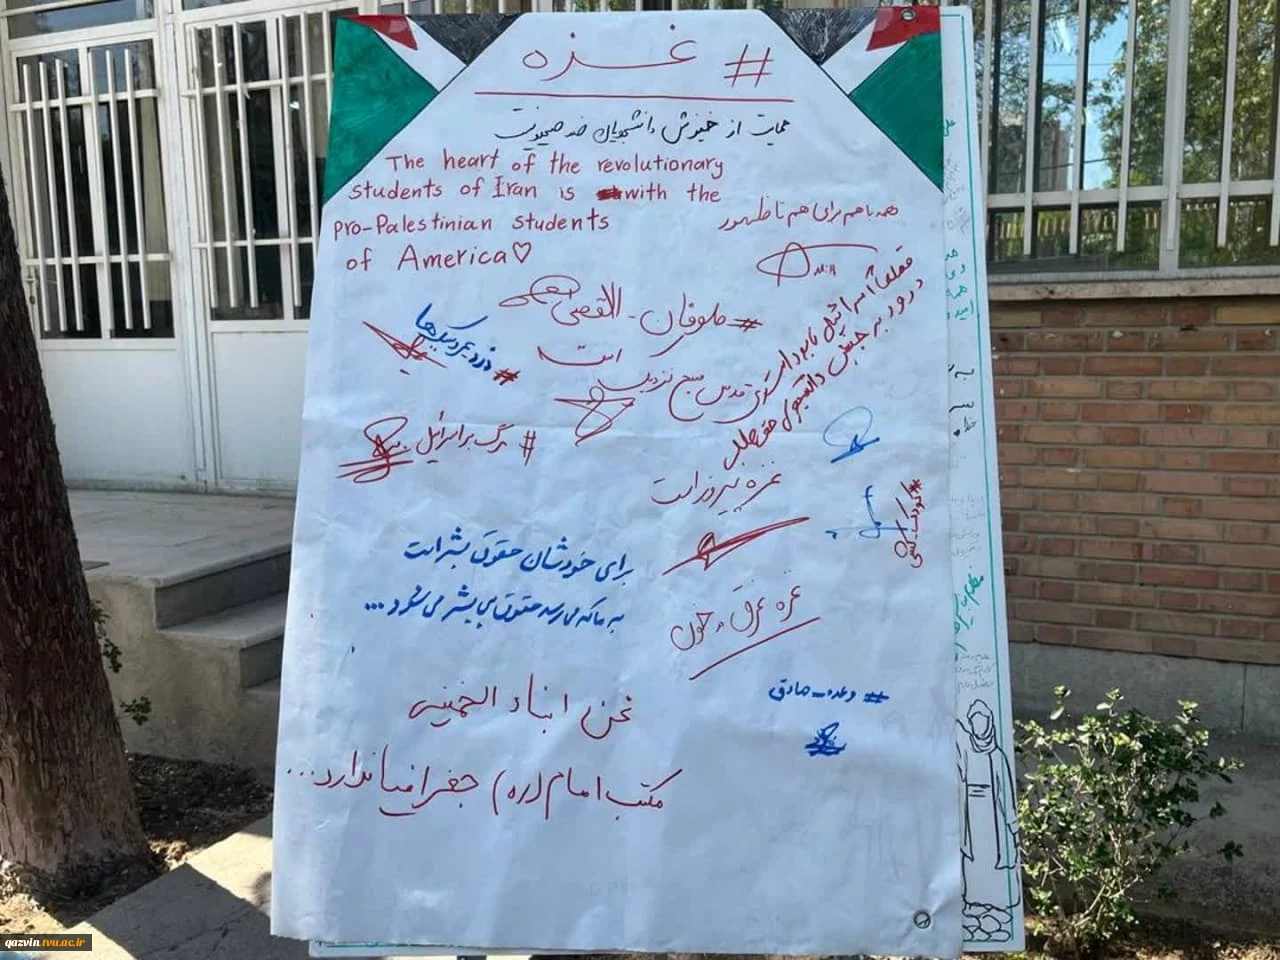 # غزه
حمایت از خیزش دانشجویان ضد صهیونیست
The heart of the revolutionary
students of Iran is with the
pro-Palestinian students
of America♡
همه با هم برای هم تا ظهور
#طوفان_الاقصی
است
قطعاً اسرائیل نابود است
درود به جنبش دانشجویی حق طلب
قدس صبح نزدیک
# مرگ بر اسرائیل
غزه پیروز است
#کودک_کشی
برای خودشان حقوق بشر است
به ما که می رسد حقوق بی بشر می شود...
غزه غرق در خون
#وعده_صادق
نحن ابناء الخمینی
مکتب امام (ره) جغرافیا ندارد...
qazvin.tvu.ac.ir